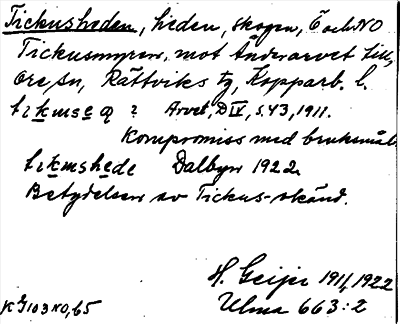 Tickusheden, heden, skogen, Ö och NO
Tickusmyren, mot Änderarvet till,
Ore sn, Rättviks tg, Kopparb. l.
Arvet, D IV, s. 43, 1911.
Kompromiss med bruksmål.
Dalbyn 1922
Betydelsen av Tickus- okänd.
H. Geijer 1911, 1922
KG 103 NO, 65
Ulma 663:2